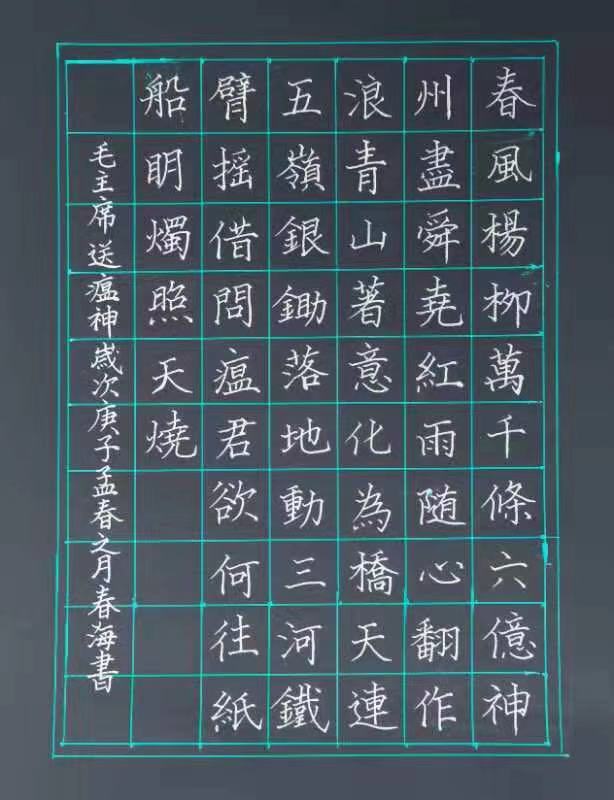 春風楊柳萬千條六億神
州盡舜堯紅雨随心翻作
浪青山著意化為橋天連
五嶺銀鋤落地動三河鐵
臂摇借問瘟君欲何往紙
船明燭照天燒
毛主席送瘟神歲次庚子孟春之月春海書